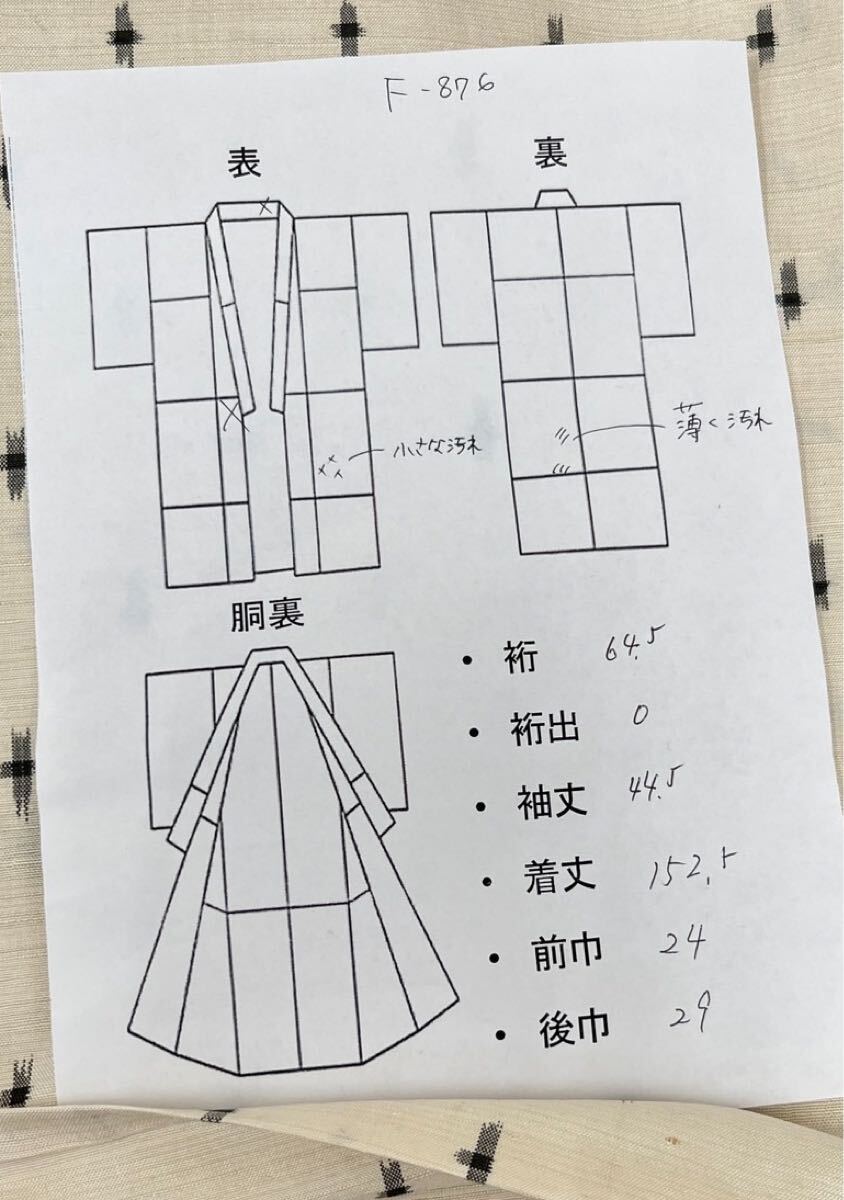 F-876
表
裏
小さな汚れ
薄く汚れ
胴裏
・裄 64.5
・裄出 0
・袖丈 44.5
・着丈 152.5
・前巾 24
・後巾 29